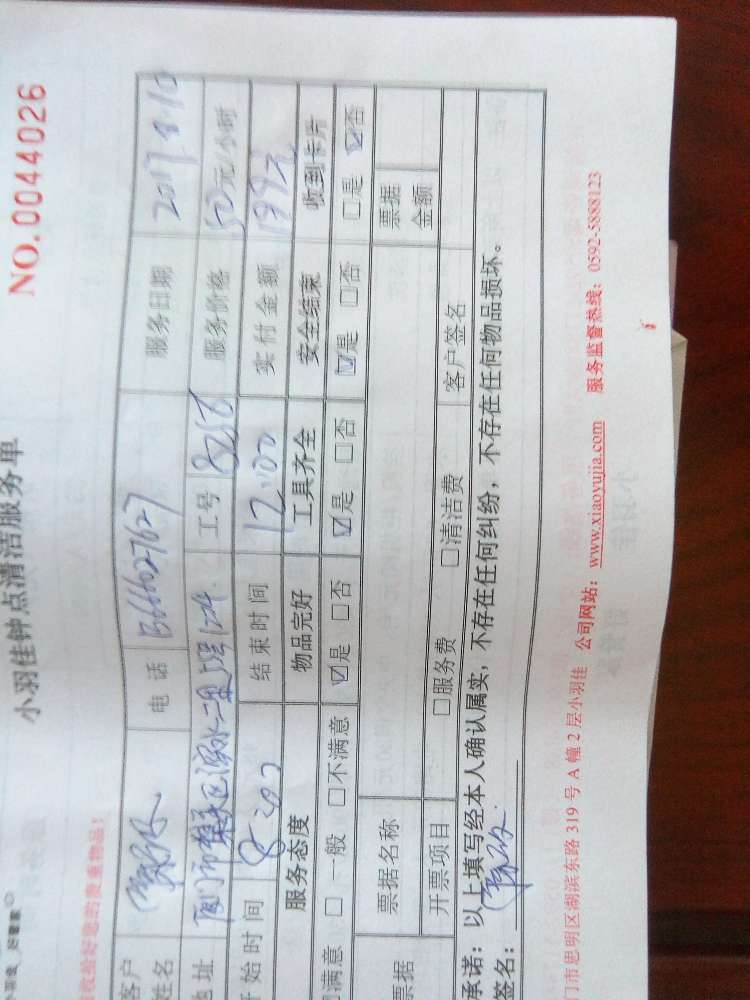 NO.0044026
小羽佳钟点清洁服务单
收拾好您的贵重物品!
客户姓名 电话 服务日期 2017.8.10
地址 工号 服务价格 50元/小时
开始时间 结束时间 12:00 实付金额 199元
服务态度 物品完好 工具齐全 安全结束 收到卡片
满意 □一般 □不满意 ☑是 □否 ☑是 □否 ☑是 □否 □是 ☑否
票据 票据名称 票据金额
开票项目 □服务费 □清洁费 客户签名
承诺:以上填写经本人确认属实,不存在任何纠纷,不存在任何物品损坏。
签名:
门市思明区湖滨东路 319 号 A 幢 2 层小羽佳 公司网站:www.xiaoyujia.com 服务监督热线:0592-5888123